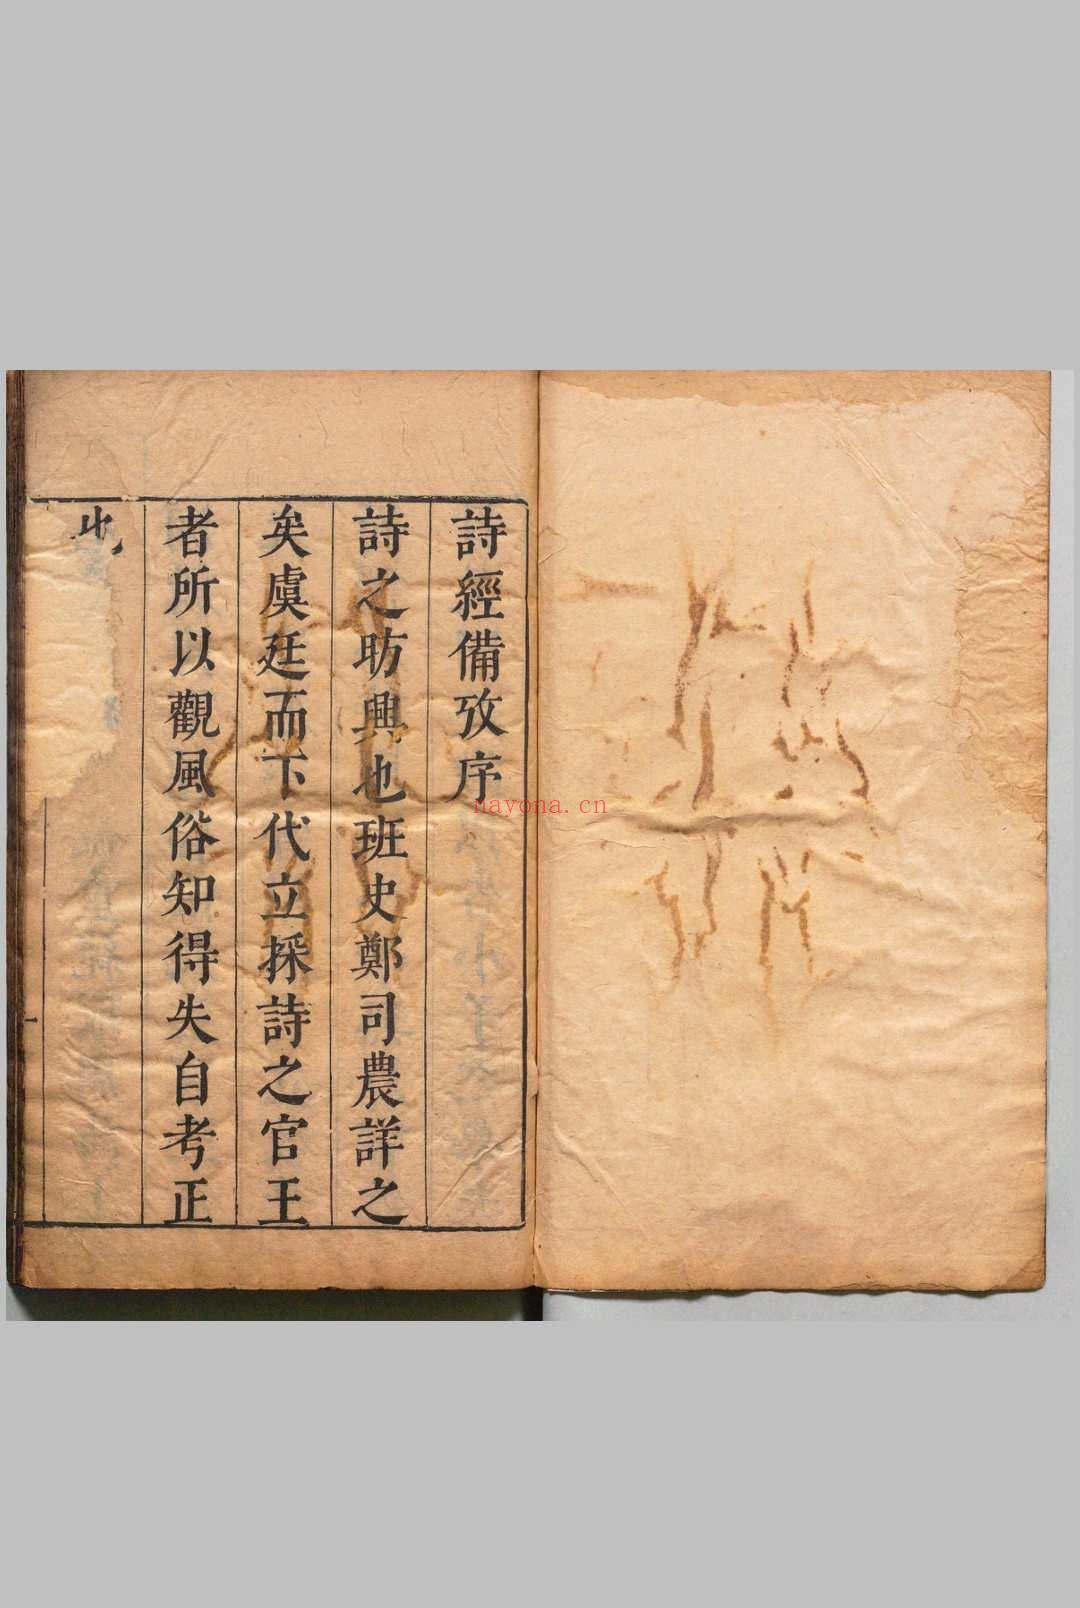 詩經備攷序
詩之昉興也班史鄭司農詳之
矣虞廷而下代立採詩之官王
者所以觀風俗知得失自考正
也
nayona.cn